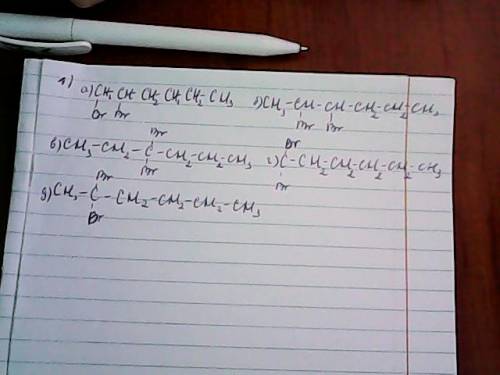 1)
а) CH2-CH-CH2-CH2-CH2-CH3
Br Br
б) CH3-CH-CH-CH2-CH2-CH3
Br Br
Br
в) CH3-CH2-C-CH2-CH2-CH3
Br
Br
г) C-CH2-CH2-CH2-CH2-CH3
Br
Br
д) CH3-C-CH2-CH2-CH2-CH3
Br